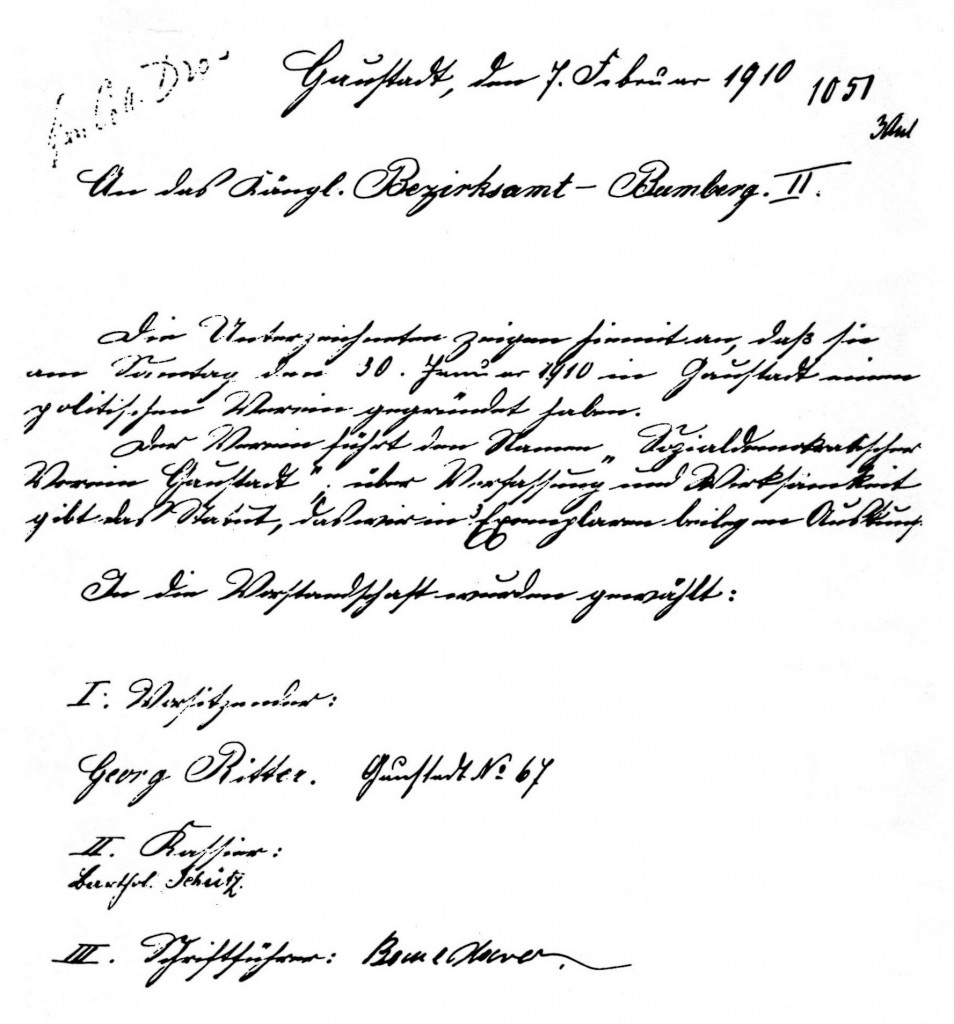 Gaustadt, den 7. Februar 1910
1051
An das Königl. Bezirksamt - Bamberg. II.
Die Unterzeichneten zeigen hiemit an, daß sie
am Sonntag den 30. Januar 1910 in Gaustadt einen
politischen Verein gegründet haben.
Der Verein führt den Namen „Sozialdemokratischer
Verein Gaustadt“; über Verfassung und Wirksamkeit
gibt das Statut, das wir in 3 Exemplaren beilegen Auskunft
In die Vorstandschaft wurden gewählt:
I. Vorsitzender:
Georg Ritter. Gaustadt No 67
II. Kassier:
Barthol. Schütz.
III. Schriftführer: